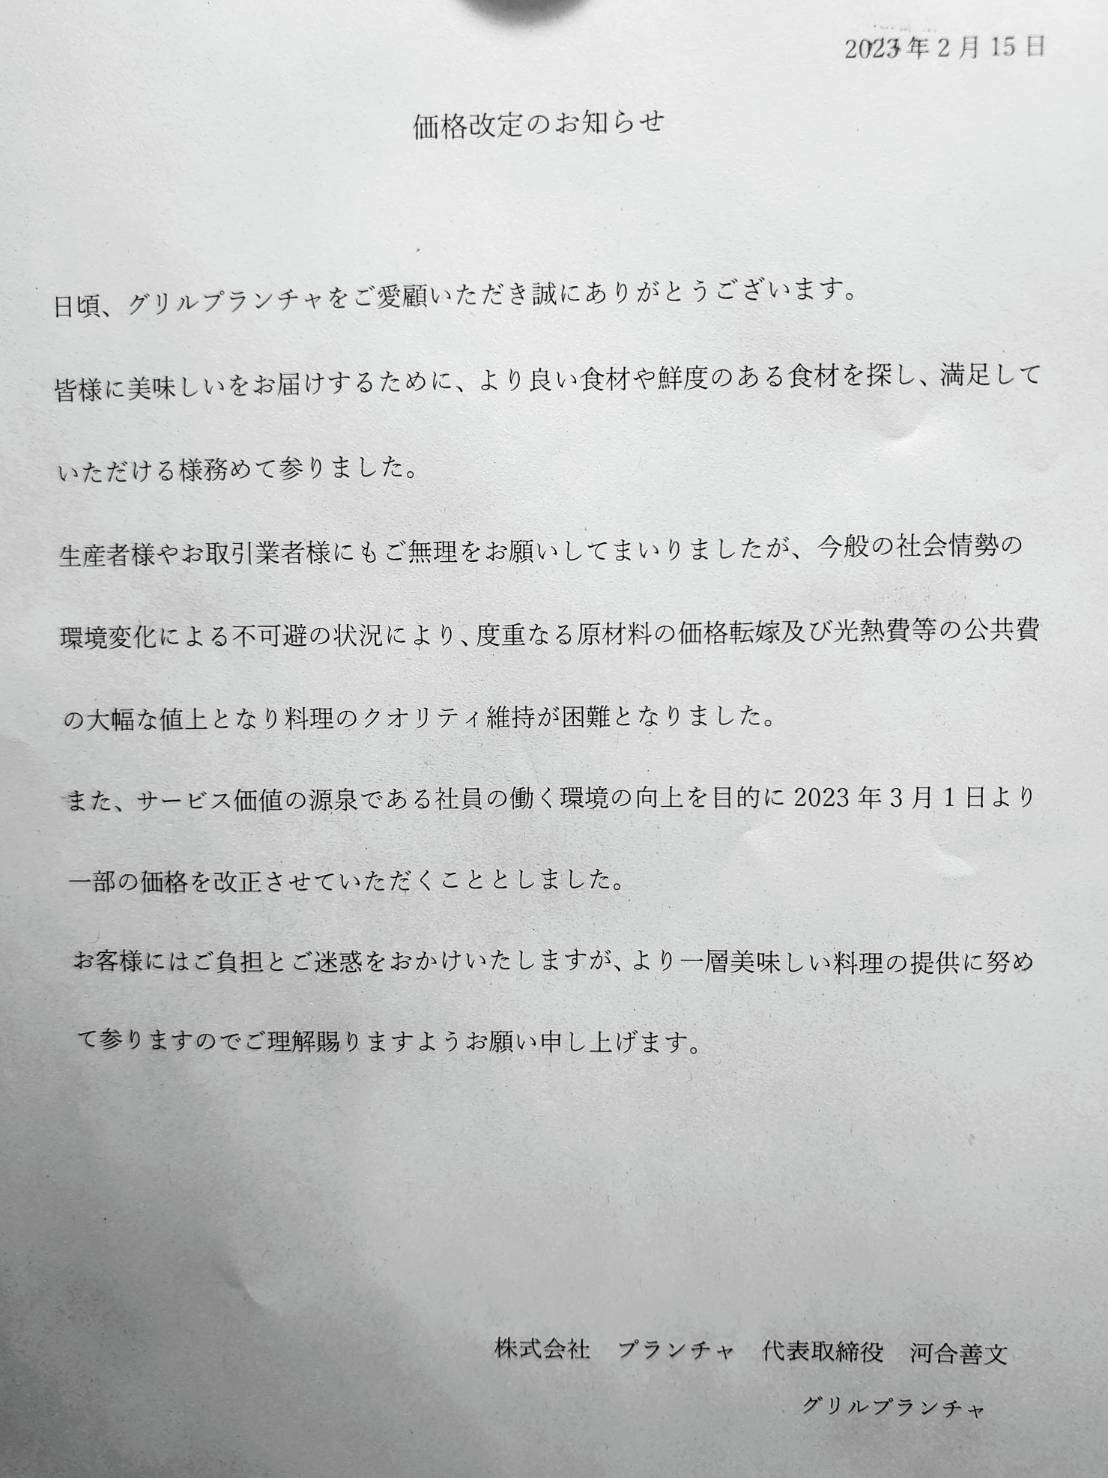 2023年2月15日
価格改定のお知らせ
日頃、グリルプランチャをご愛顧いただき誠にありがとうございます。
皆様に美味しいをお届けするために、より良い食材や鮮度のある食材を探し、満足して
いただける様務めて参りました。
生産者様やお取引業者様にもご無理をお願いしてまいりましたが、今般の社会情勢の
環境変化による不可避の状況により、度重なる原材料の価格転嫁及び光熱費等の公共費
の大幅な値上となり料理のクオリティ維持が困難となりました。
また、サービス価値の源泉である社員の働く環境の向上を目的に 2023 年 3 月 1 日より
一部の価格を改正させていただくこととしました。
お客様にはご負担とご迷惑をおかけいたしますが、より一層美味しい料理の提供に努め
て参りますのでご理解賜りますようお願い申し上げます。
株式会社　プランチャ　代表取締役　河合善文
グリルプランチャ